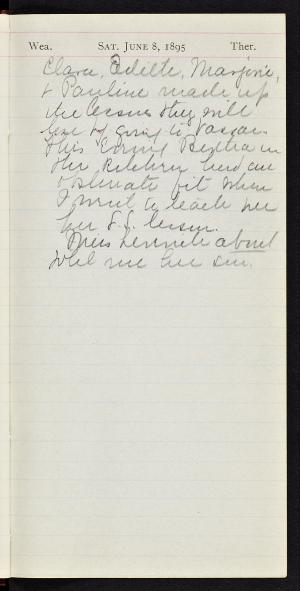 Wea. SAT. JUNE 8, 1895 Ther.
Clara, Edith, Marjorie,
& Pauline made up
the lessons they will
lose by going to Vassar.
This evening Bertha in
the kitchen had an
obstinate fit when
I went to teach her
her S.S. lesson.
Miss about
told me her son.